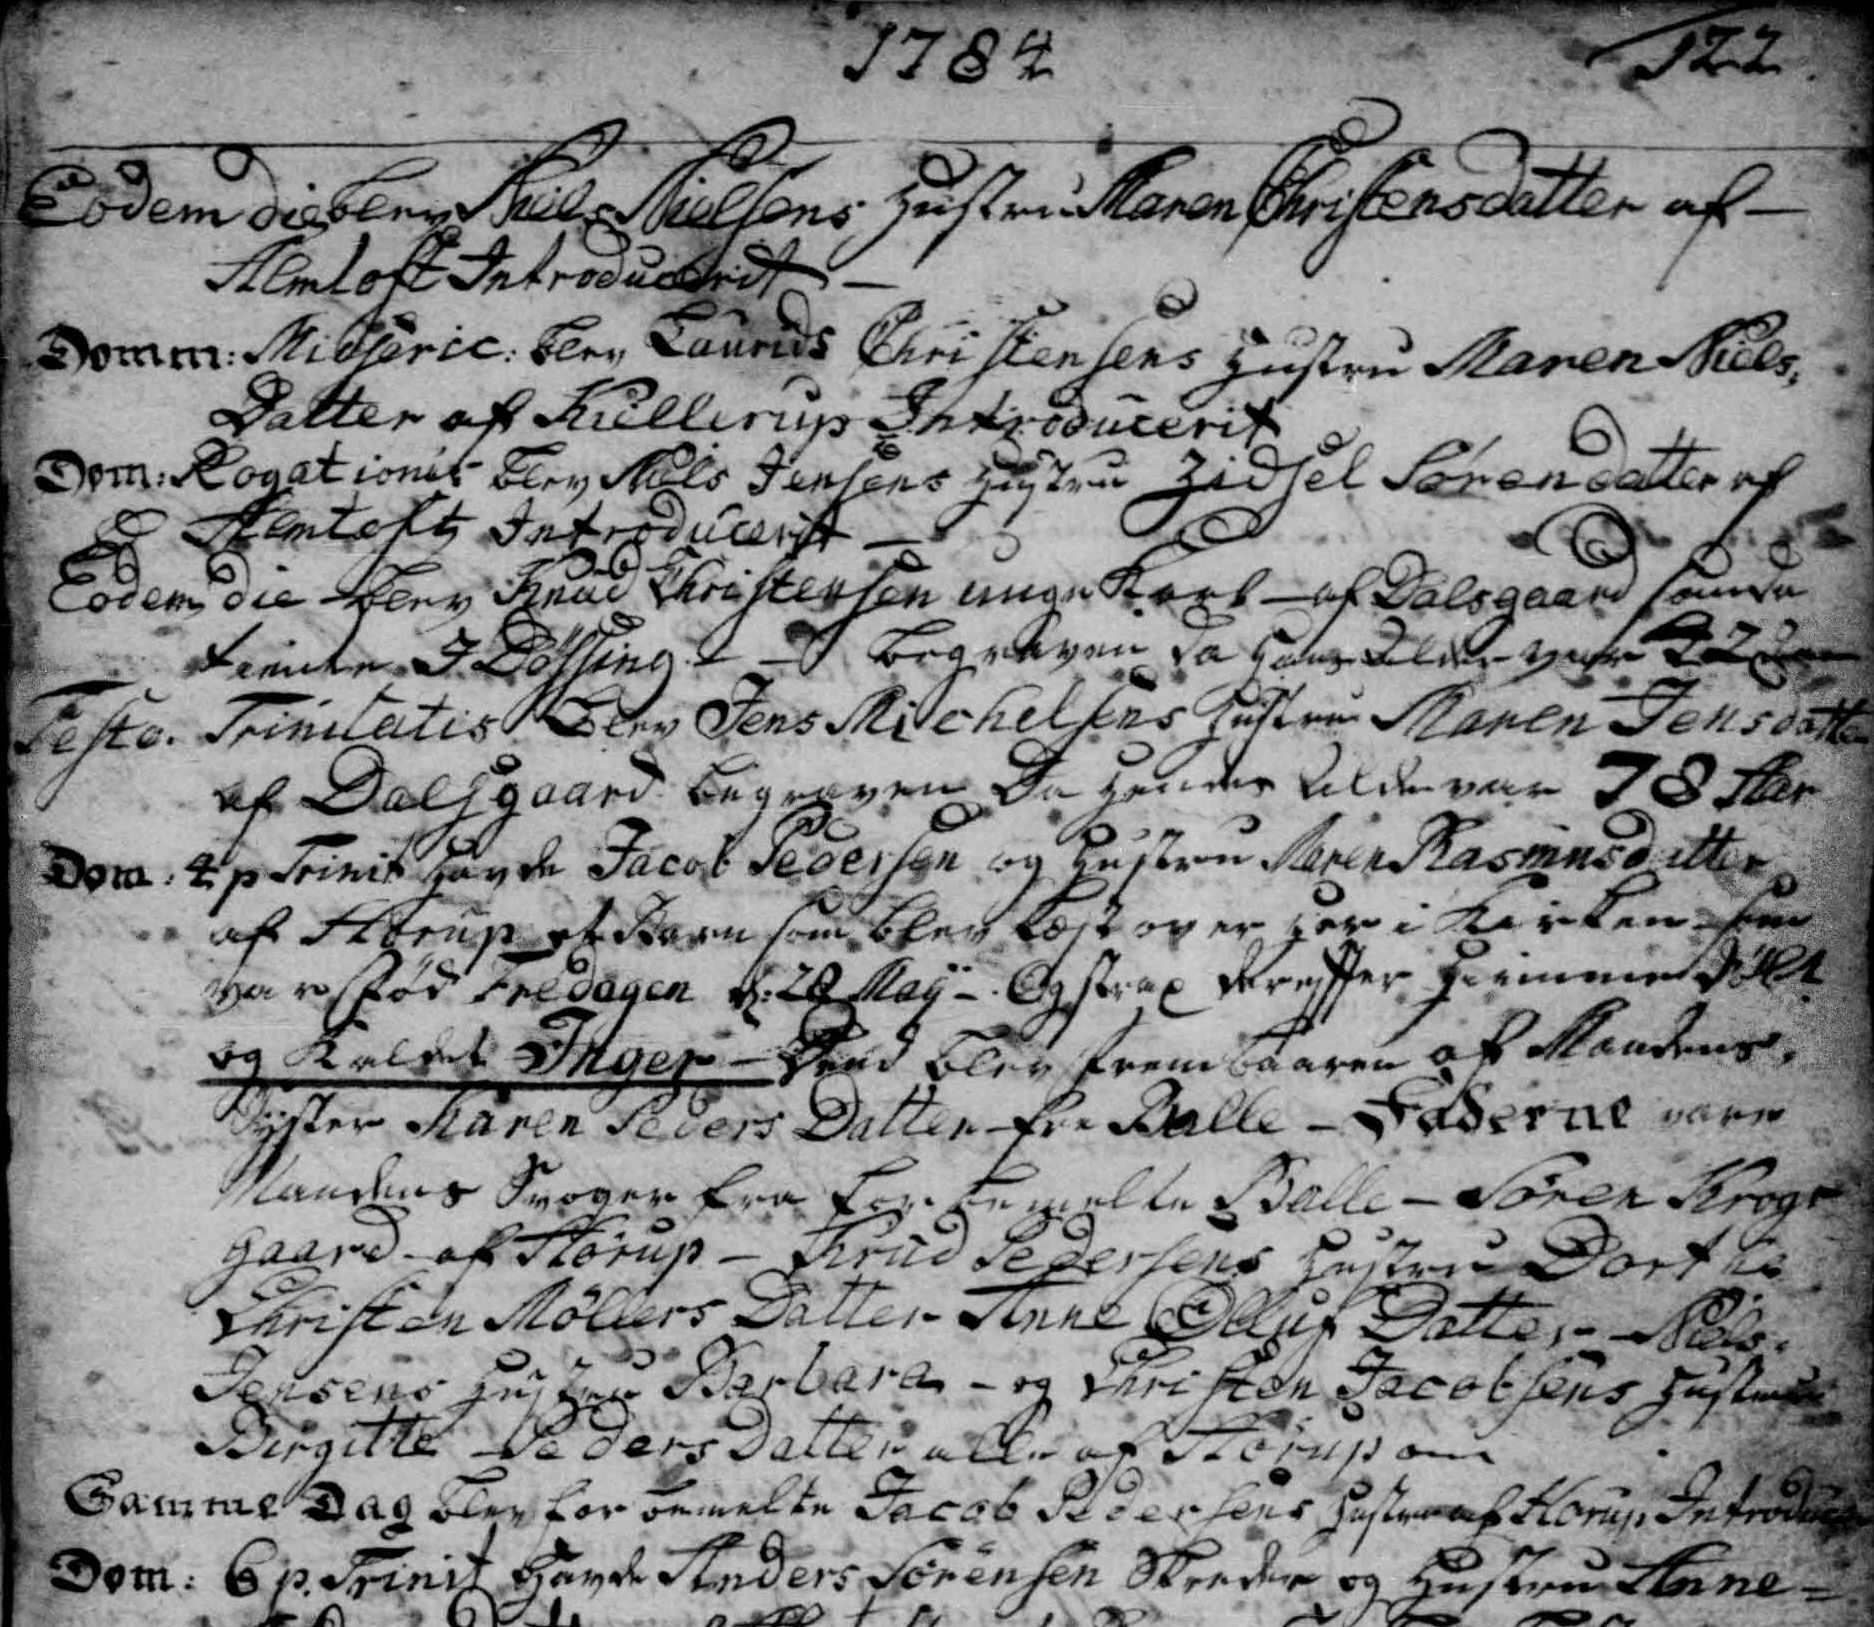 1784 122.
Eodem die blev Niels Nielsens Hustru Maren Christensdatter af –
Almtoft Introducerit –
Domm: Midseric: blev Laurids Christensens Hustru Maren Niels,
Datter af Kiellerup Introducerit
Dom: Rogationis blev Niels Jensens Hustru Zidsel Sørendatter af
Almtoft Introducerit –
Eodem die – blev Knud Christensen unge Karl – af Dalsgaard som da
tiente I Døssing – – begraven da Hans Alder var 22
Festo. Trinitatis blev Jens Michelsens Hustru Maren Jensdatter
af Dalsgaard begraven Da Hendes Alder var 78 Aar
Dom: 4 p Trinit havde Jacob Pedersen og Hustru Maren Rasmusdatter
af Storup et Barn som blev læst over her i Kirken som
var fød Fredagen d: 28 May –. Og strax derefter Hiemmedøbt
og Kaldet Inger – blev frembaaren af Mandens,
Syster Karen Peders Datter fra Balle – Fadderne vare
Mandens Svoger fra forbemelte Balle – Sören Krogs
gaard – af Storup – Knud Pedersens Hustru Dorthe
Christen Möllers Datter – Anne Olluf Datter – Niels.
Jensens Hustru Barbara – og Christen Jacobsens Hustru
Birgitte Peders Datter alle af Storup
Samme Dag blev forbemelte Jacob Pedersens Hustru af Storup Introduce
Dom: 6 p. Trinit havde Anders Sörensen Skreder og Hustru Anne =